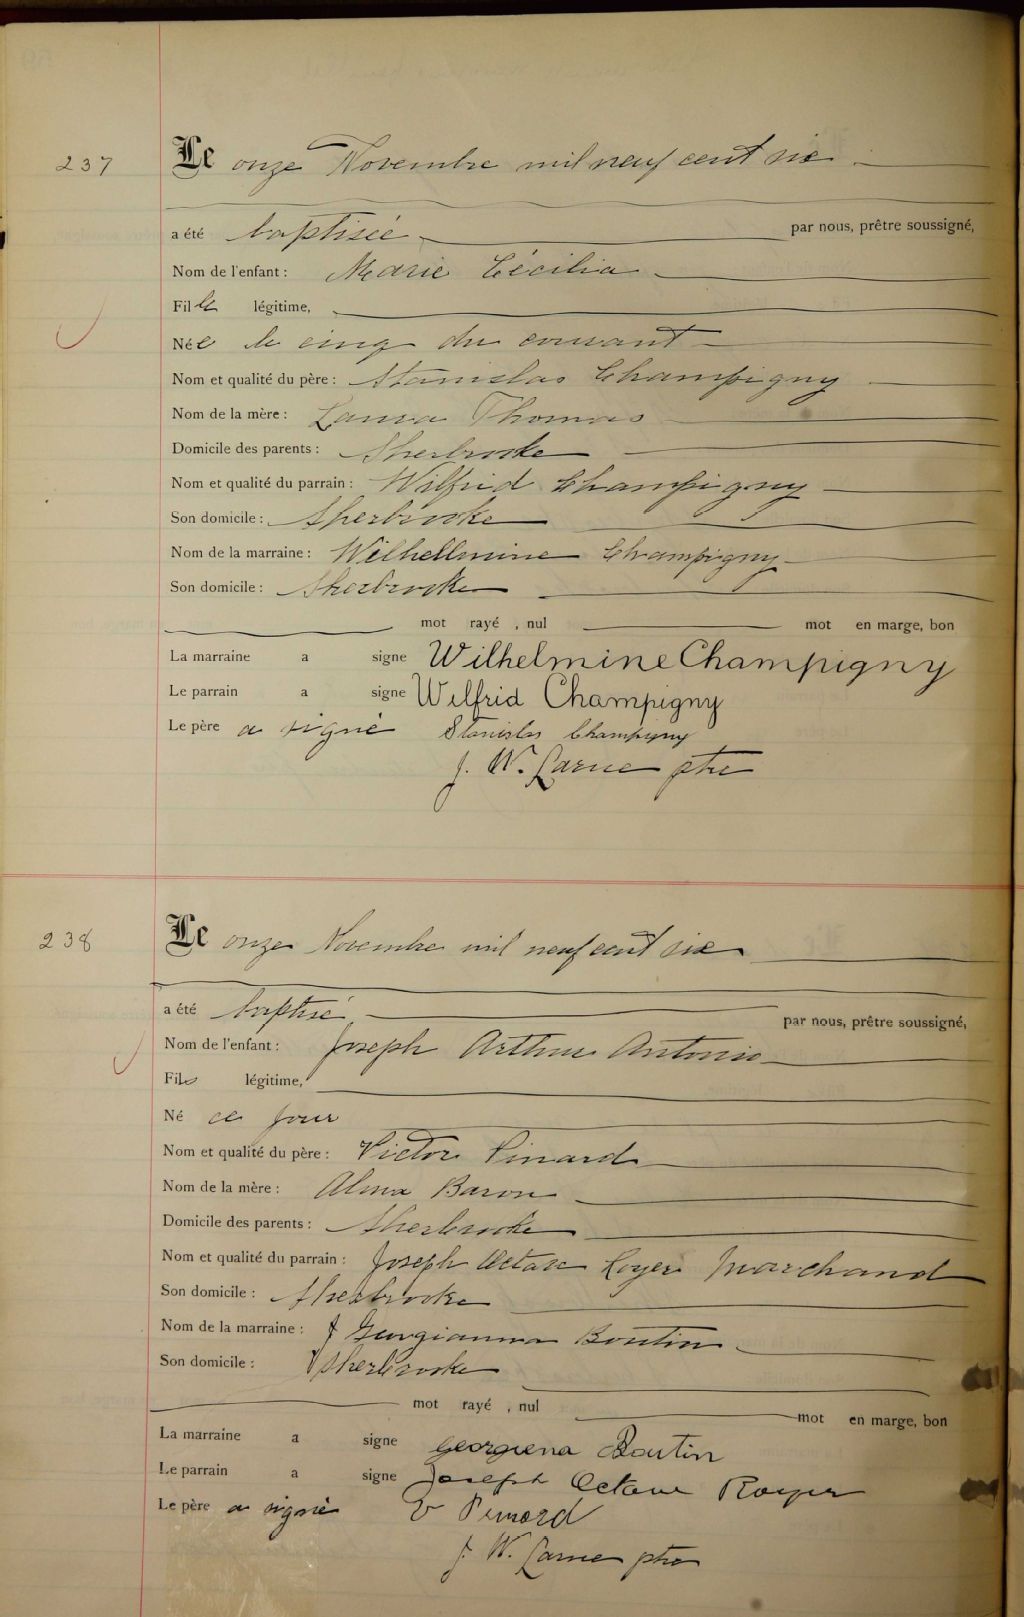 237
Le onze Novembre mil neuf cent six
a été baptisée par nous, prêtre soussigné,
Nom de l'enfant : Marie Cécilia
Fille légitime,
Née le cinq du courant
Nom et qualité du père : Stanislas Champigny
Nom de la mère : Laura Thomas
Domicile des parents : Sherbrooke
Nom et qualité du parrain : Wilfrid Champigny
Son domicile : Sherbrooke
Nom de la marraine : Wilhellmine Champigny
Son domicile : Sherbrooke
mot rayé , nul mot en marge, bon
La marraine a signe Wilhelmine Champigny
Le parrain a signe Wilfrid Champigny
Le père a signé Stanislas Champigny
J. W. Larue ptre
238
Le onze Novembre mil neuf cent six
a été baptisé par nous, prêtre soussigné,
Nom de l'enfant : Joseph Arthur Antonio
Fils légitime,
Né ce jour
Nom et qualité du père : Victor Pinard
Nom de la mère : Alma Baron
Domicile des parents : Sherbrooke
Nom et qualité du parrain : Joseph Octave Royer Marchand
Son domicile : Sherbrooke
Nom de la marraine : Georgianna Boutin
Son domicile : Sherbrooke
mot rayé , nul mot en marge, bon
La marraine a signe Georgiena Boutin
Le parrain a signe Joseph Octave Royer
Le père a signé V Pinard
J. W. Larue ptre